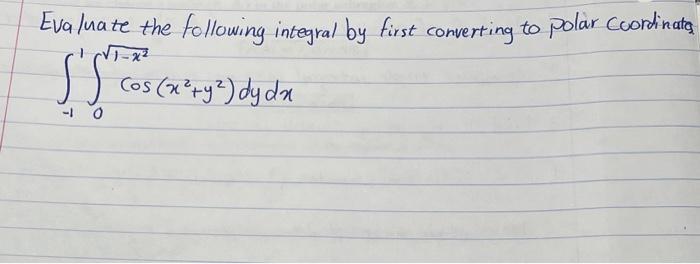 Evaluate the following integral by first converting to polar Coordinates
∫_{-1}^{1} ∫_{0}^{√1-x²} Cos (x²+y²) dy dx